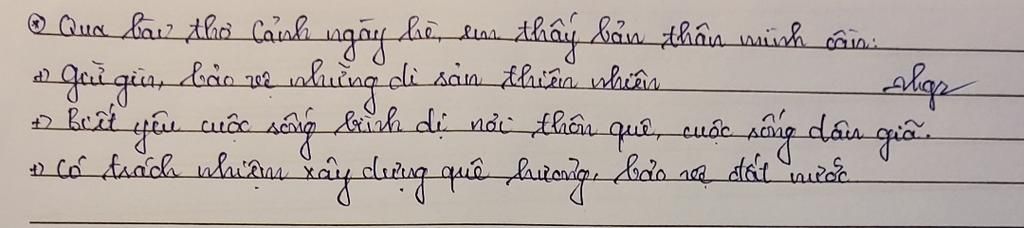 * Qua bài thơ Cảnh ngày hè, em thấy bản thân mình cần:
+) giữ gìn, bảo vệ những di sản thiên nhiên
+) Biết yêu cuộc sống bình dị nơi thôn quê, cuộc sống dân giã.
+) Có trách nhiệm xây dựng quê hương, bảo vệ đất nước